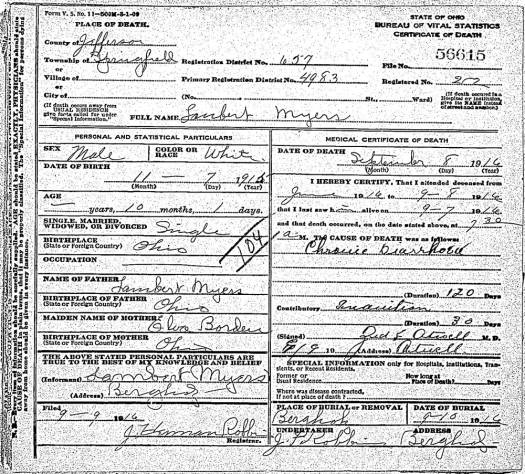 Form V. S. No. 11—500M-8-1-09
PLACE OF DEATH.
County of Jefferson
Township of Springfield Registration District No. 657
or
Village of Primary Registration District No. 4983
or
City of (No. St., Ward)
(If death occurs away from USUAL RESIDENCE give facts called for under "Special Information.")
FULL NAME Lambert Myers
STATE OF OHIO
BUREAU OF VITAL STATISTICS
CERTIFICATE OF DEATH
File No. 56615
Registered No.
(If death occurred in a Hospital or institution, give its NAME instead of street and number.)
PERSONAL AND STATISTICAL PARTICULARS
SEX Male COLOR OR RACE White
DATE OF BIRTH
11 — 7 1915
(Month) (Day) (Year)
AGE
— years, 10 months, 1 days.
SINGLE, MARRIED, WIDOWED, OR DIVORCED Single
BIRTHPLACE (State or Foreign Country) Ohio
OCCUPATION
104
NAME OF FATHER Lambert Myers
BIRTHPLACE OF FATHER (State or Foreign Country) Ohio
MAIDEN NAME OF MOTHER Elva Borden
BIRTHPLACE OF MOTHER (State or Foreign Country) Ohio
THE ABOVE STATED PERSONAL PARTICULARS ARE
TRUE TO THE BEST OF MY KNOWLEDGE AND BELIEF
(Informant) Lambert Myers
(Address) Bergholz
Filed 9-9 1916
J. Herman Robb
Registrar.
MEDICAL CERTIFICATE OF DEATH
DATE OF DEATH
September 8 1916
(Month) (Day) (Year)
I HEREBY CERTIFY, That I attended deceased from
June 1916 to 9-8 1916
that I last saw h alive on 9-7 1916
and that death occurred, on the date stated above, at 7 30
a M. The CAUSE OF DEATH was as follows:
Chronic Diarrhoea
(Duration) 120 Days
Contributory Inanition
(Duration) 30 Days
(Signed) Atwell M. D.
(Address)
SPECIAL INFORMATION only for Hospitals, Institutions, Transients, or Recent Residents.
Former or Usual Residence How long at Place of Death? Days
Where was disease contracted, if not at place of death?
PLACE OF BURIAL or REMOVAL DATE OF BURIAL
Bergholz 9-10 1916
UNDERTAKER ADDRESS
Bergholz